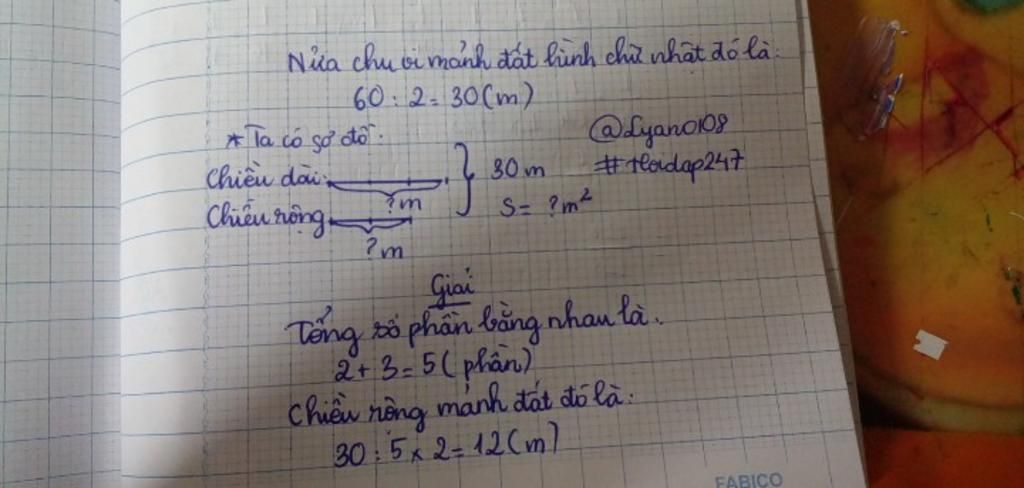 Nửa chu vi mảnh đất hình chữ nhật đó là:
60 : 2 = 30 (m)
* Ta có sơ đồ:
@Lyano108
#Hoidap247
Chiều dài:
?m
30 m
Chiều rộng
?m
S = ?m²
Giải
Tổng số phần bằng nhau là.
2 + 3 = 5 (phần)
Chiều rộng mảnh đất đó là:
30 : 5 x 2 = 12 (m)
FABICO